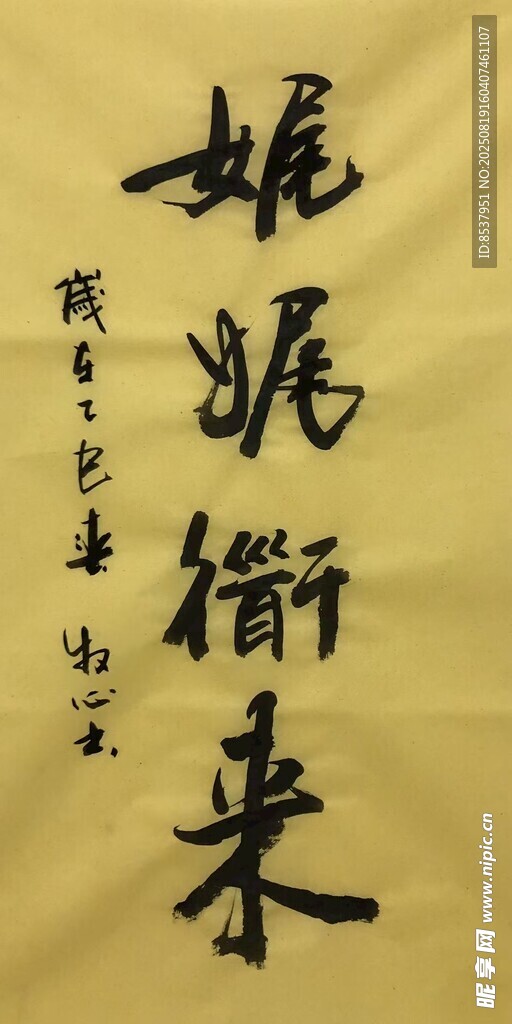 娓娓衟来
歲在乙巳春 牧心书
ID:8537951 NO:20250819160407461107
昵享网 www.nipic.cn